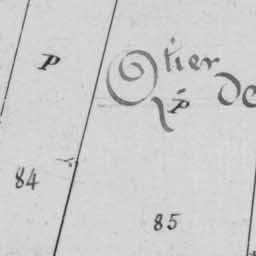 P
Qtier de
P
84
85